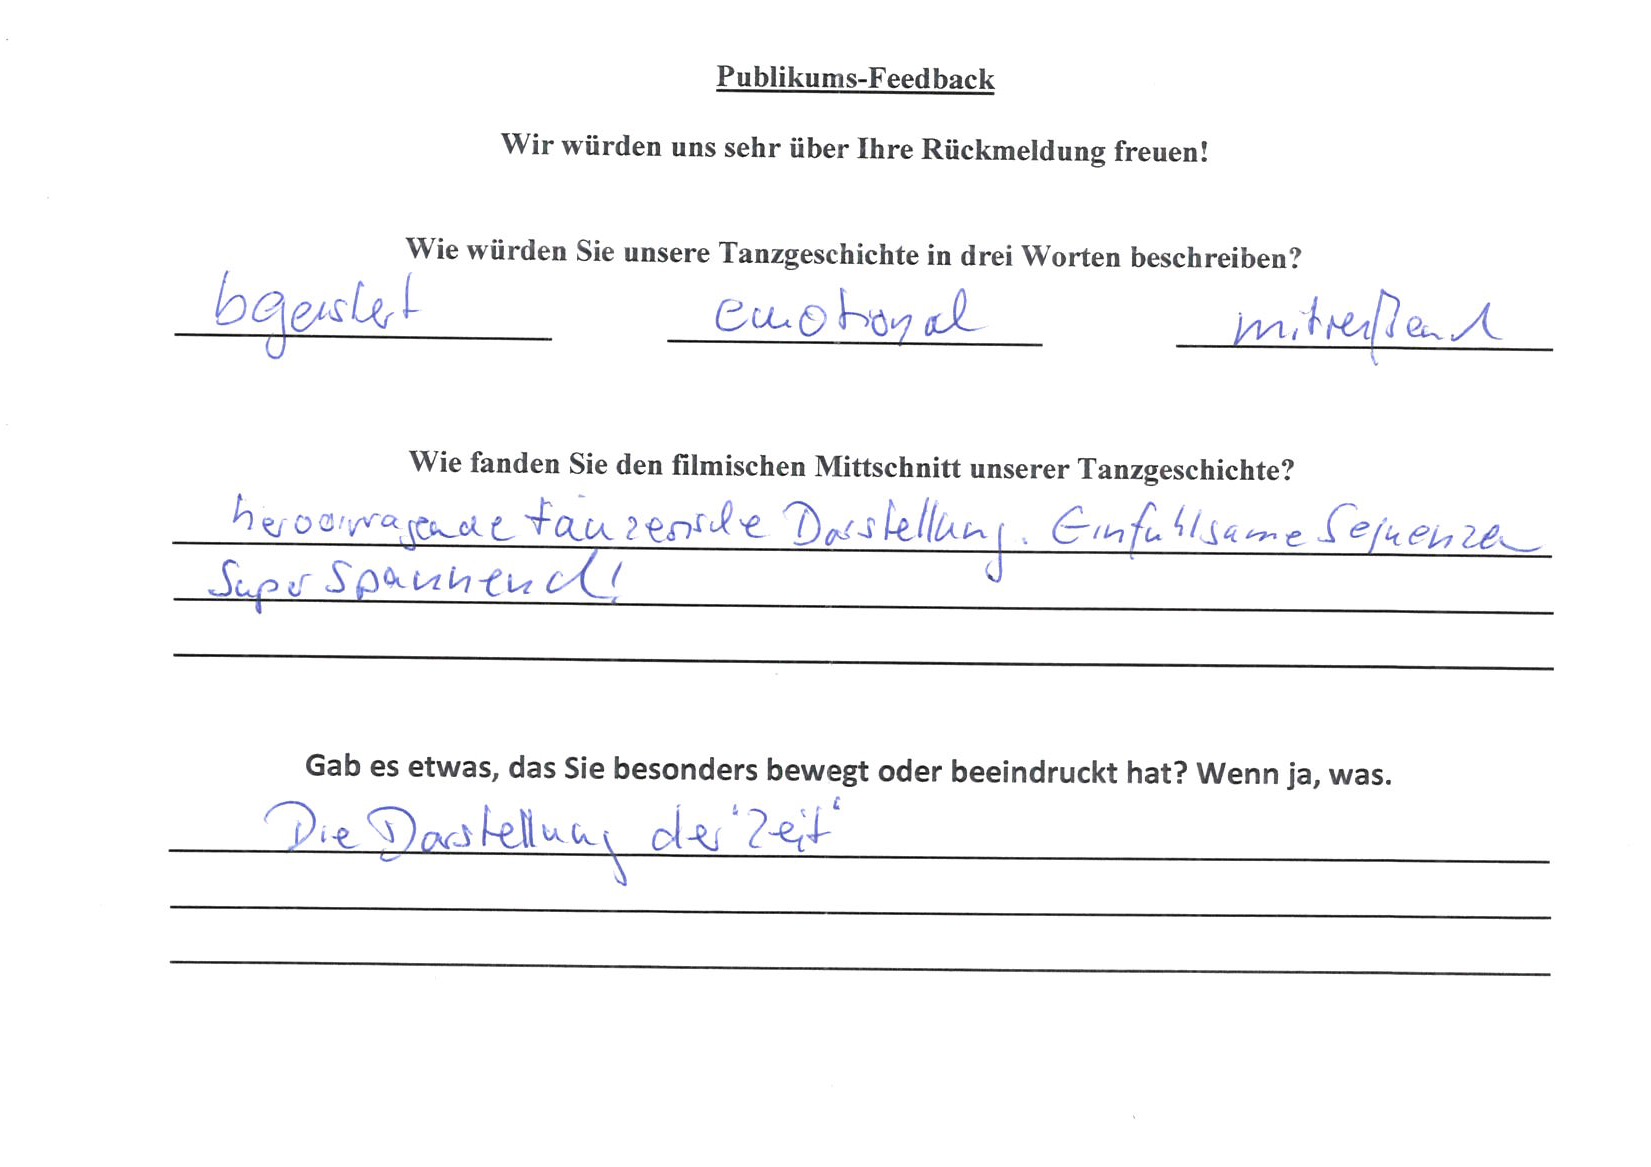 Publikums-Feedback
Wir würden uns sehr über Ihre Rückmeldung freuen!
Wie würden Sie unsere Tanzgeschichte in drei Worten beschreiben?
bgeistert emotional mitreißend
Wie fanden Sie den filmischen Mittschnitt unserer Tanzgeschichte?
hervorragende tänzerische Darstellung. Einfühlsame Sequenzen
Super Spannend!
Gab es etwas, das Sie besonders bewegt oder beeindruckt hat? Wenn ja, was.
Die Darstellung der 'Zeit'